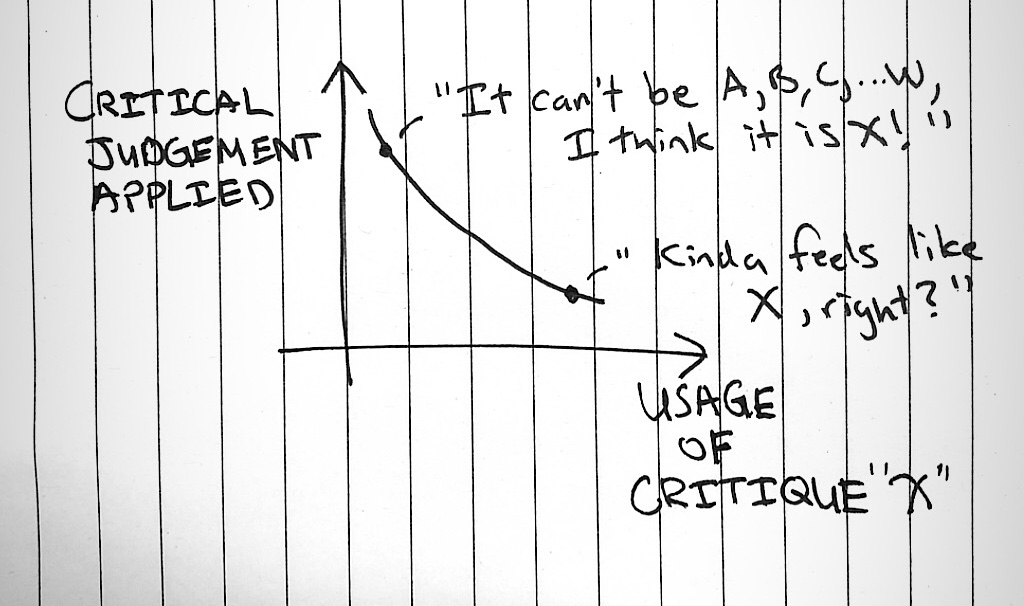 CRITICAL
JUDGEMENT
APPLIED
"It can't be A, B, C, ...W,
I think it is X!"
"Kinda feels like
X, right?"
USAGE
OF
CRITIQUE "X"